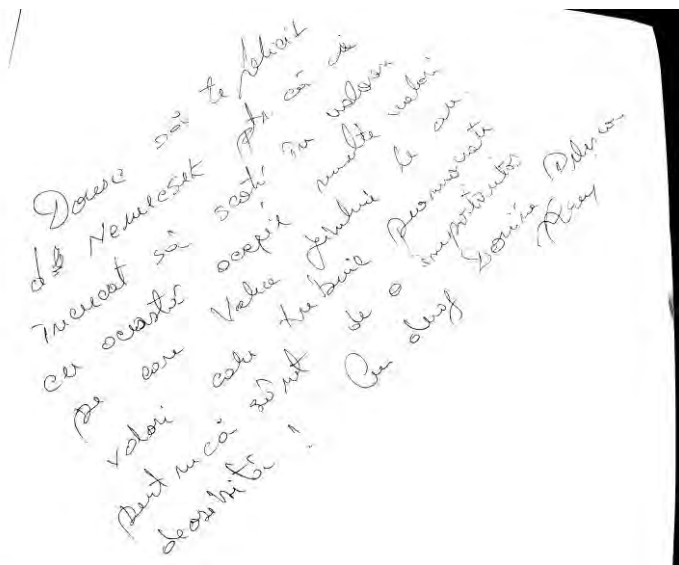 Doresc să te felicit
dle Nemecsek ptr. că ai
încercat să scoți în valoare
cu această ocazie multe valori
pe care Valea Jiului le are.
valori care trebuie promovate
pentru că sînt de o importanță
deosebită! Cu drag Dorina